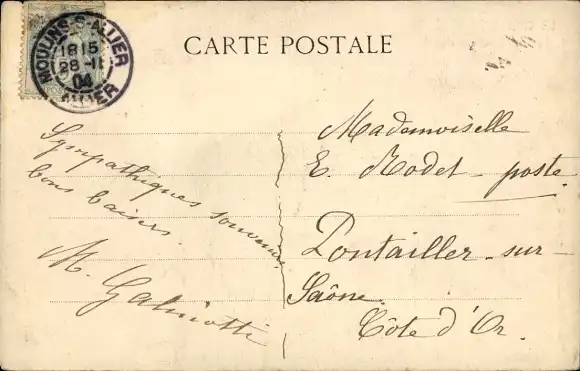 CARTE POSTALE
MOULINS-S-ALLIER
1815
28-11
04
ALLIER
Sympathiques souvenirs,
bons baisers.
M. Galmotti
Mademoiselle
E. Rodet - poste.
Pontailler - sur -
Saône.
Côte d'Or.